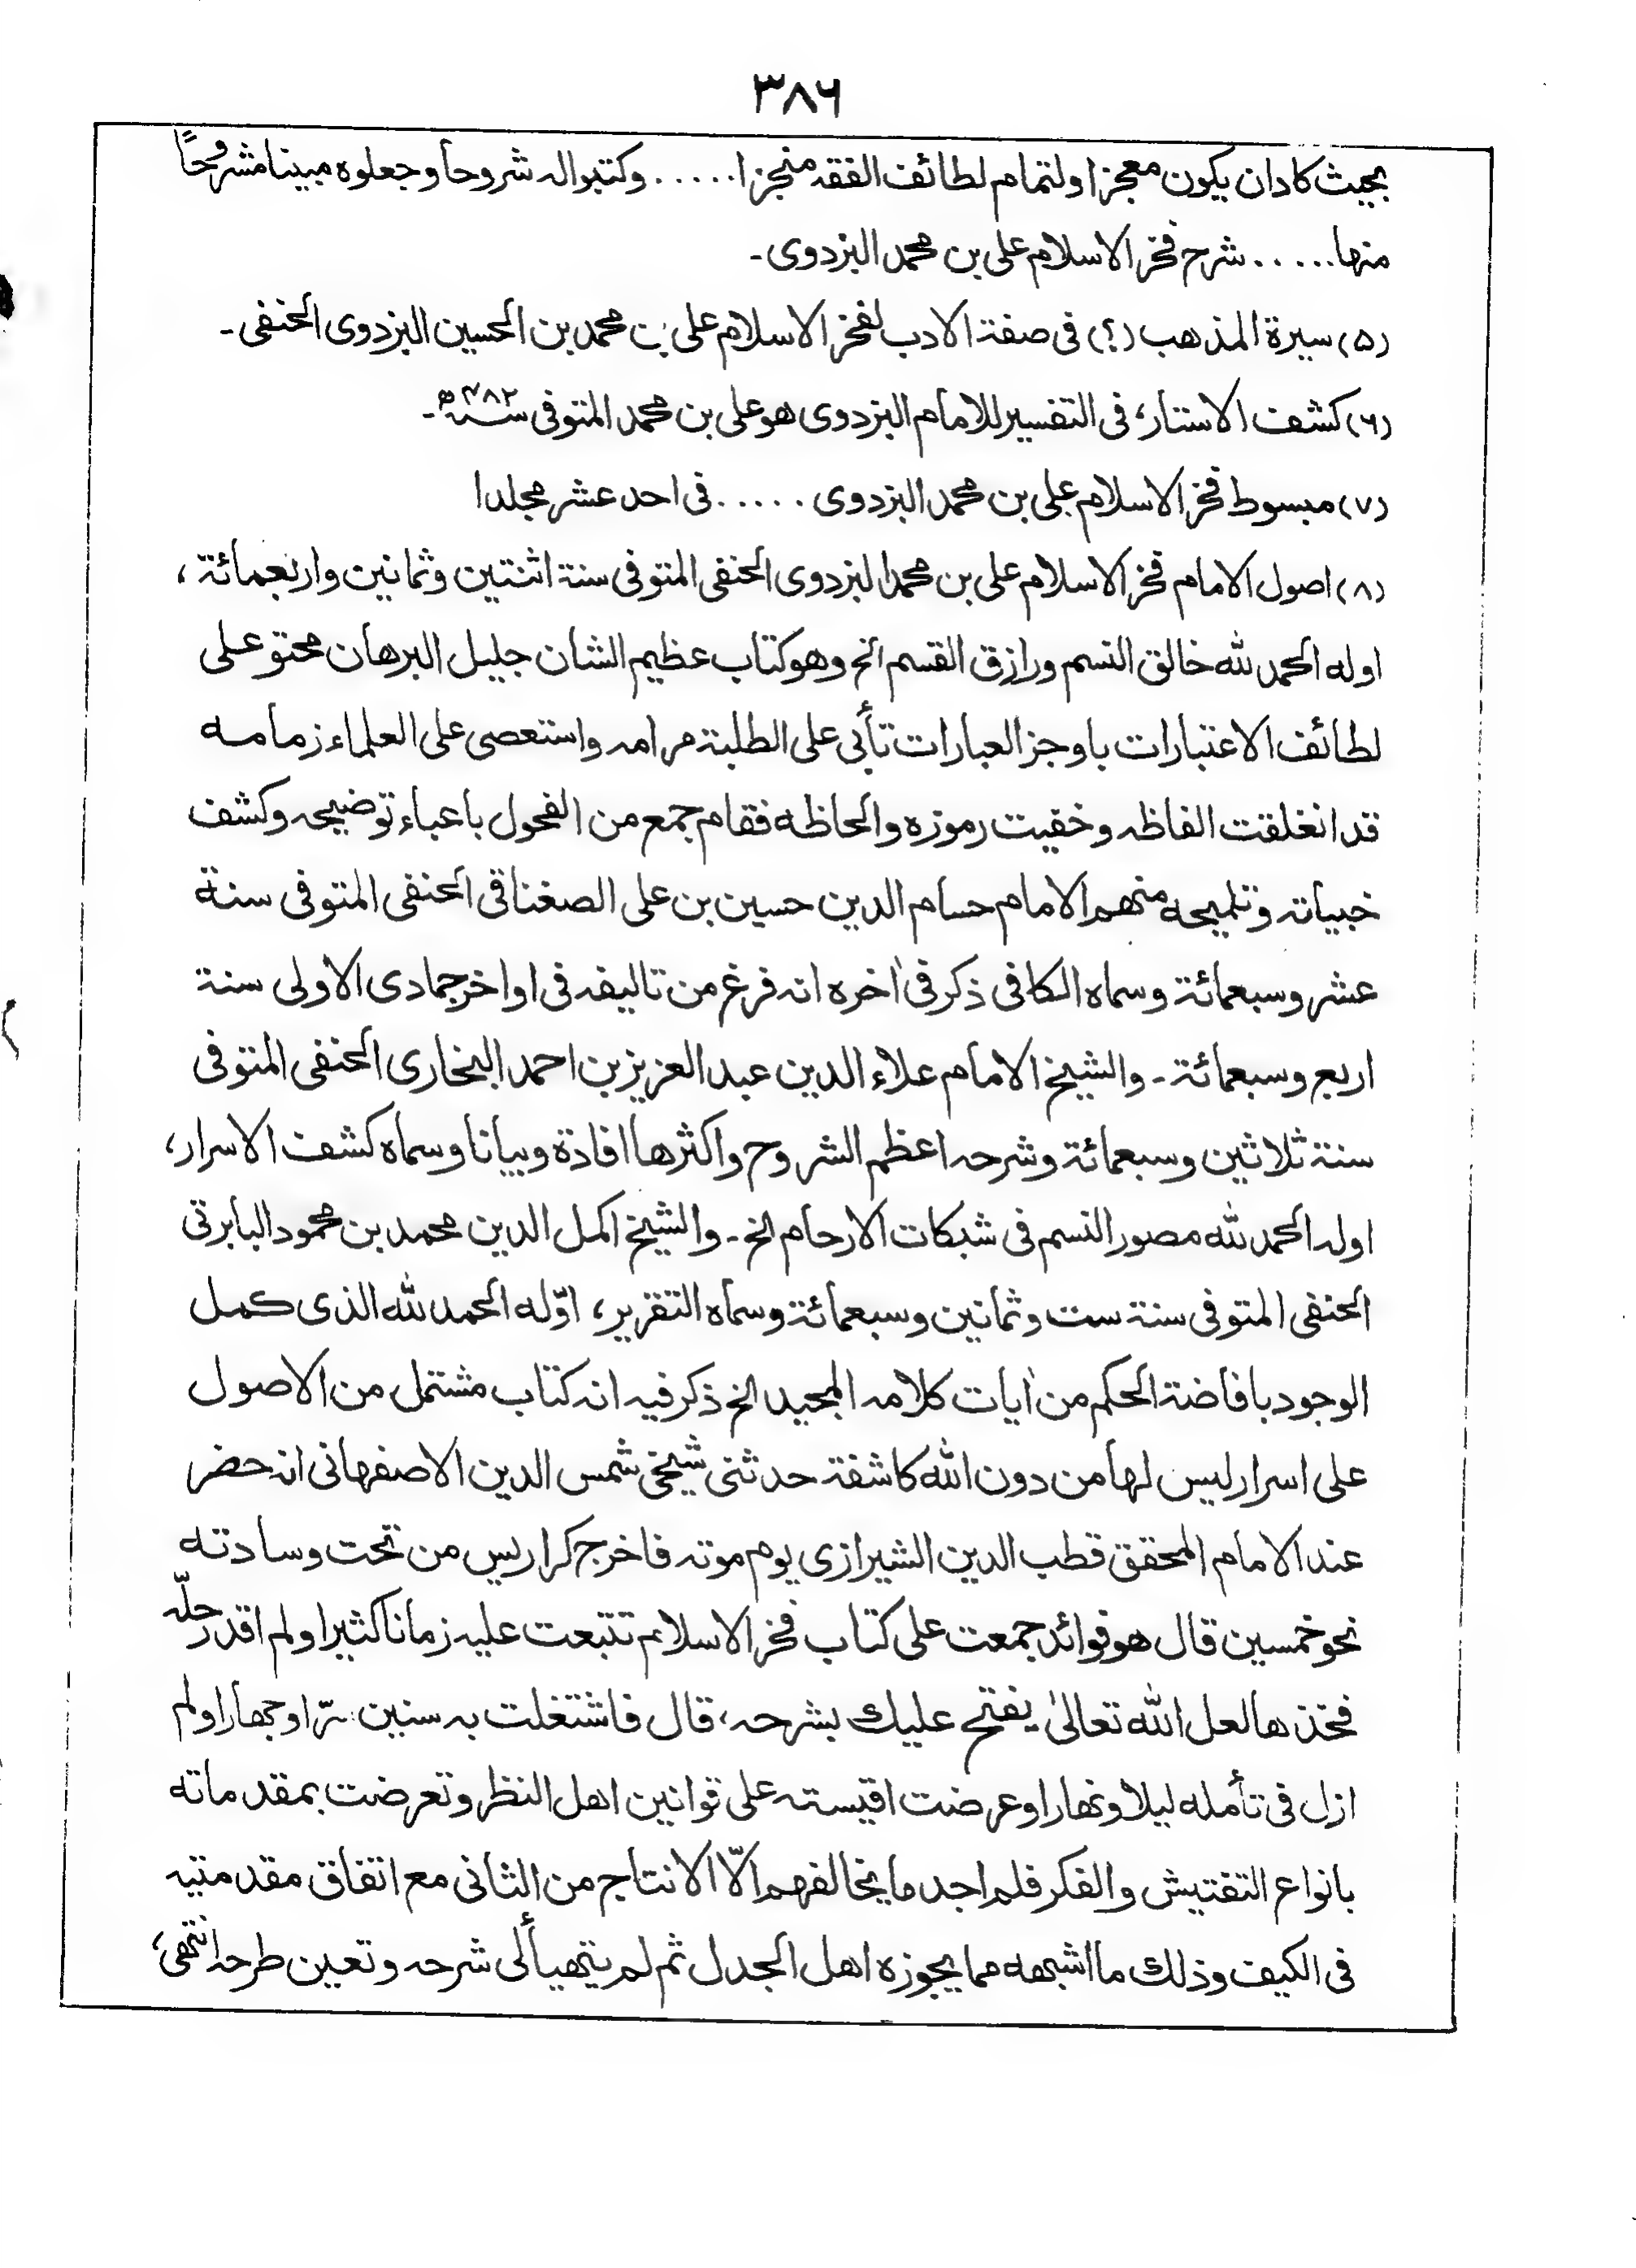 ٣٨٦
بحيث كادان يكون معجزا ولتمام لطائف الفقه منجزا..... وكتبوا له شروحاً وجعلوه مبينا مشروحًا
منها..... شرح فخر الاسلام على بن محمد البزدوى ۔
(۵) سيرة المذهب (؟) فى صفة الادب لفخر الاسلام على بن محمد بن الحسين البزدوى الحنفى ۔
(٦) كشف الاستار، فى التفسير للامام البزدوى هو على بن محمد المتوفى سنة ٤٨٢ھ ۔
(٧) مبسوط فخر الاسلام على بن محمد البزدوى ..... فى احد عشر مجلدا
(٨) اصول الامام فخر الاسلام على بن محمد البزدوى الحنفى المتوفى سنة اثنتين وثمانين واربعمائة،
اوله الحمد لله خالق النسم ورازق القسم الخ وهو كتاب عظيم الشان جليل البرهان محتو على
لطائف الاعتبارات باوجز العبارات تأبى على الطلبة مرامه واستعصى على العلماء زمامه
قد انغلقت الفاظه وخفيت رموزه والحاظه فقام جمع من الفحول باعباء توضيحه وكشف
خبياته وتلميحه منهم الامام حسام الدين حسين بن على الصغناقى الحنفى المتوفى سنة
عشر وسبعمائة وسماه الكافى ذكر فى اٰخره انه فرغ من تاليفه فى اواخر جمادى الاولى سنة
اربع وسبعمائة ۔ والشيخ الامام علاء الدين عبد العزيز بن احمد البخارى الحنفى المتوفى
سنة ثلاثين وسبعمائة وشرحه اعظم الشروح واكثرها افادة وبيانا وسماه كشف الاسرار،
اوله الحمد لله مصور النسم فى شبكات الارحام الخ ۔ والشيخ اكمل الدين محمد بن محمود البابرتى
الحنفى المتوفى سنة ست وثمانين وسبعمائة وسماه التقرير، اوّله الحمد لله الذى كمل
الوجود بافاضة الحكم من اٰيات كلامه المجيد الخ ذكر فيه انه كتاب مشتمل من الاصول
على اسرار ليس لها من دون الله كاشفة حدثنى شيخى شمس الدين الاصفهانى انه حضر
عند الامام المحقق قطب الدين الشيرازى يوم موته فاخرج كراريس من تحت وسادته
نحو خمسين قال هو فوائد جمعت على كتاب فخر الاسلام تتبعت عليه زمانا كثيرا ولم اقدر حلّه
فخذها لعل الله تعالىٰ يفتح عليك بشرحه، قال فاشتغلت به سنين سرّا وجهارا ولم
ازل فى تأمله ليلا ونهارا وعرضت اقيسته على قوانين اهل النظر وتعرضت بمقدماته
بانواع التفتيش والفكر فلم اجد ما يخالفهم الّا الانتاج من الثانى مع اتفاق مقدمتيه
فى الكيف وذلك ما اشبهه مما يجوزه اهل الجدل ثم لم يتهيأ لى شرحه وتعين طرحه انتهى،